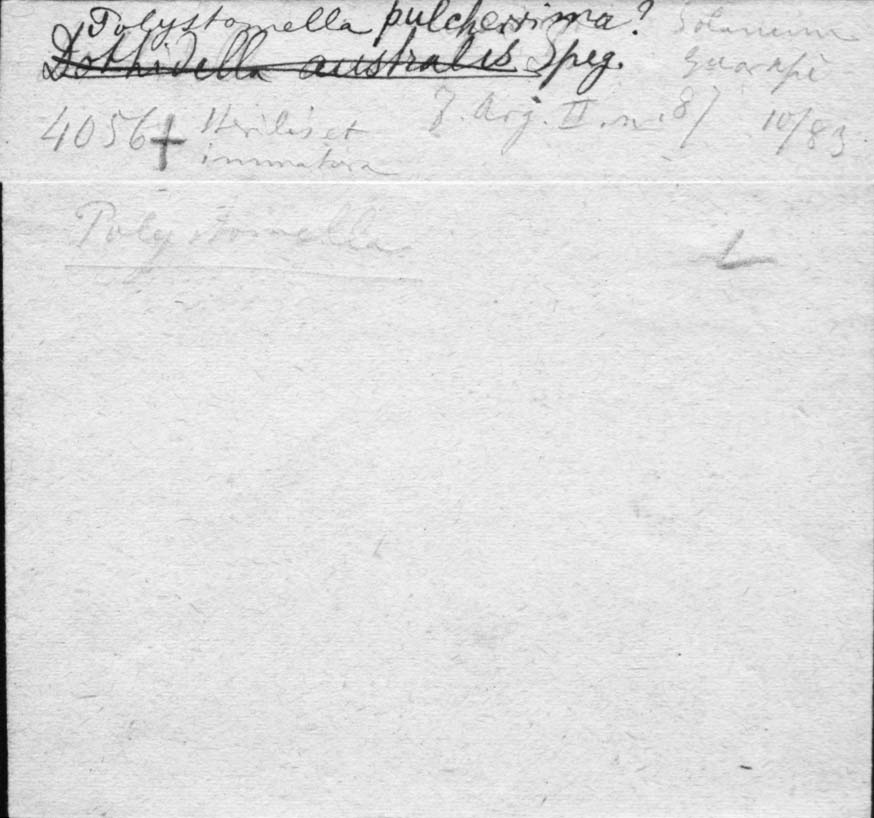 Polystomella pulcherrima? Solanum
Dothidella australis Speg. Guarapi
4056 † Sterilis et F. Arg. II. n. 87 10/83
immatura
Polystomella